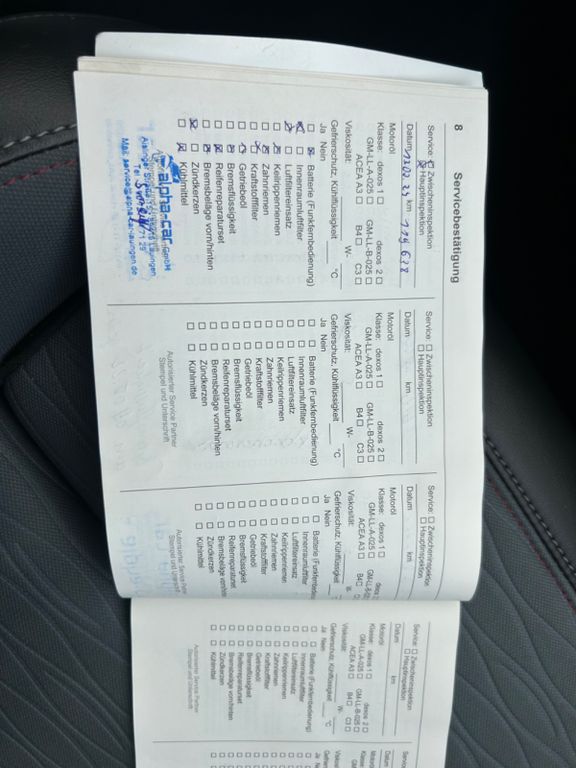 8 Servicebestätigung
Service: ☐ Zwischeninspektion
☒ Hauptinspektion
Datum 13.02.23 km 179 678
Motoröl
Klasse: dexos 1 ☐ dexos 2 ☐
GM-LL-A-025 ☐ GM-LL-B-025 ☐
ACEA A3 ☐ B4 ☐ C3 ☐
Viskosität: W-
Gefrierschutz, Kühlflüssigkeit °C
Ja Nein
Batterie (Funkfernbedienung)
Innenraumluftfilter
Luftfiltereinsatz
Keilrippenriemen
Zahnriemen
Kraftstofffilter
Getriebeöl
Bremsflüssigkeit
Reifenreparaturset
Bremsbeläge vorn/hinten
Zündkerzen
Kühlmittel
alpha-car GmbH
Service: ☐ Zwischeninspektion
☐ Hauptinspektion
Datum km
Motoröl
Klasse: dexos 1 ☐ dexos 2 ☐
GM-LL-A-025 ☐ GM-LL-B-025 ☐
ACEA A3 ☐ B4 ☐ C3 ☐
Viskosität: W-
Gefrierschutz, Kühlflüssigkeit °C
Ja Nein
☐ ☐ Batterie (Funkfernbedienung)
☐ ☐ Innenraumluftfilter
☐ ☐ Luftfiltereinsatz
☐ ☐ Keilrippenriemen
☐ ☐ Zahnriemen
☐ ☐ Kraftstofffilter
☐ ☐ Getriebeöl
☐ ☐ Bremsflüssigkeit
☐ ☐ Reifenreparaturset
☐ ☐ Bremsbeläge vorn/hinten
☐ ☐ Zündkerzen
☐ ☐ Kühlmittel
Autorisierter Service Partner
Stempel und Unterschrift
Service: ☐ Zwischeninspektion
☐ Hauptinspektion
Datum km
Motoröl
Klasse: dexos 1 ☐ dexos 2
GM-LL-A-025 ☐
ACEA A3 ☐ B4 ☐
Viskosität: W-
Gefrierschutz, Kühlflüssigkeit
Ja Nein
☐ ☐ Batterie
☐ ☐ Innenraumluftfilter
☐ ☐ Luftfiltereinsatz
☐ ☐ Keilrippenriemen
☐ ☐ Zahnriemen
☐ ☐ Kraftstofffilter
☐ ☐ Getriebeöl
☐ ☐ Bremsflüssigkeit
☐ ☐ Reifenreparaturset
☐ ☐ Bremsbeläge vorn/hinten
☐ ☐ Zündkerzen
☐ ☐ Kühlmittel
Autorisierter Service
Stempel und
Service: ☐ Zwischeninspektion
☐ Hauptinspektion
Datum km
Motoröl
Klasse: dexos 1 ☐ dexos 2 ☐
GM-LL-A-025 ☐ GM-LL-B-025 ☐
ACEA A3 ☐ B4 ☐ C3 ☐
Viskosität: W-
Gefrierschutz, Kühlflüssigkeit °C
Ja Nein
☐ ☐ Batterie (Funkfernbedienung)
☐ ☐ Innenraumluftfilter
☐ ☐ Luftfiltereinsatz
☐ ☐ Keilrippenriemen
☐ ☐ Zahnriemen
☐ ☐ Kraftstofffilter
☐ ☐ Getriebeöl
☐ ☐ Bremsflüssigkeit
☐ ☐ Reifenreparaturset
☐ ☐ Bremsbeläge vorn/hinten
☐ ☐ Zündkerzen
☐ ☐ Kühlmittel
Autorisierter Service Partner
Stempel und Unterschrift
Datum
Motoröl
Klasse: